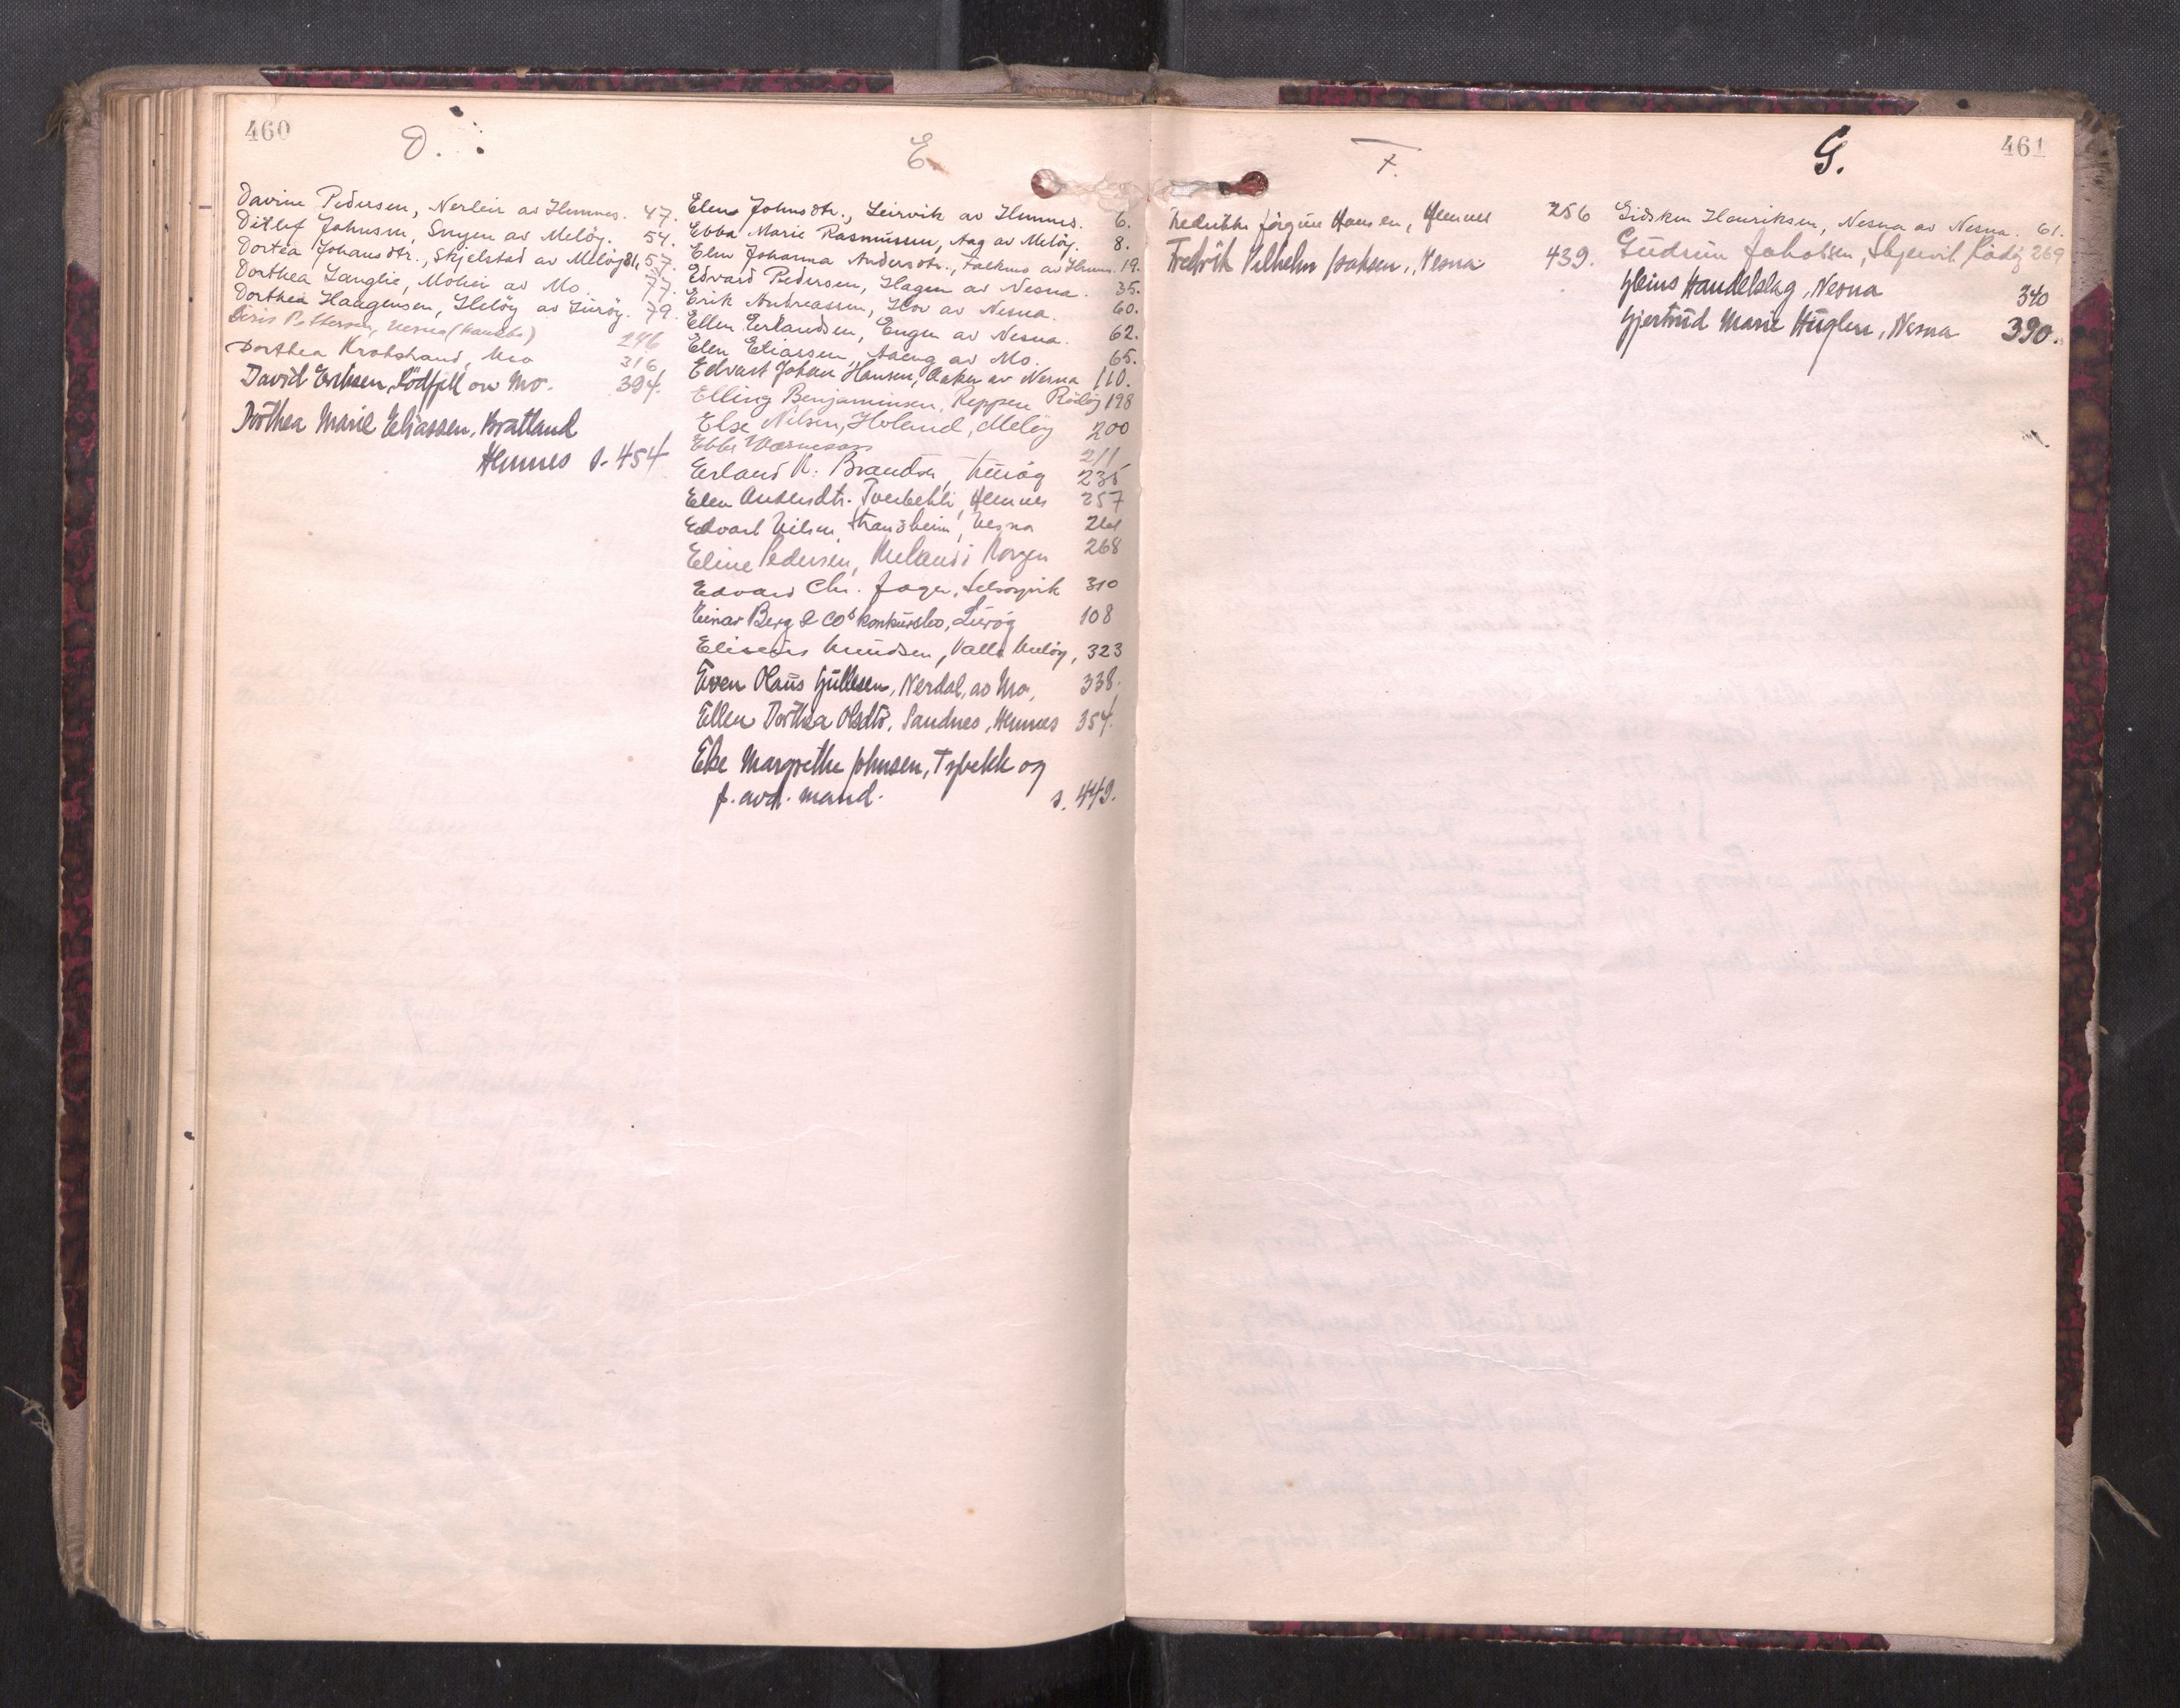 460
D.
Davine Pedersen, Nerleir av Hemnes. 47.
Ditlef Johnsen, av Melöy. 54.
Dortea Johansdtr., Skjelstad av Melöy 81, 57.
Dorthea Langlie, Moheia av Mo. 77.
Dorthea Haagensen, Selöy av Luröy. 79.
Pettersen, Nesna 246
Dorthea Krokstrand, Mo 316
David Eriksen, Rödfjell av Mo. 394.
Dorthea Marie Eliassen, Bratland
Hemnes s. 454
E
Elen Johnsdtr., Leirvik av Hemnes. 6.
Ebba Marie Rasmussen, Aag av Melöy. 8.
Elen Johanna Andersdtr., av Hemn. 19.
Edvard Pedersen, Hagen av Nesna. 35.
Erik Andreassen, Hov av Nesna. 60.
Ellen Erlandsen, Engen av Nesna. 62.
Elen Eliassen, av Mo. 65.
Edvart Johan Hansen, Aaker av Nesna 110.
Elling Benjaminsen, Reppen Rödöy 198
Else Nilsen, Holand, Melöy 200
Ebbe 211
Erland K. Brandsn, Luröy 235
Elen Andersdtr. Hemnes 257
Edvart Nilsen, Strandheim, Nesna 261
Eline Pedersen, Korgen 268
Edvard Chr. Jager, Selsöyvik 310
Einar Berg & Cos konkursbo, Luröy 108
Eliseus Knudsen, Valla Melöy, 323
Even Olaus Gullesen, Nerdal, av Mo, 338.
Ellen Dorthea Olsdtr. Sandnes, Hemnes 354.
Else Margrethe Johnsen, og
f. avd. mand. s. 449.
F.
Fredrikke Jörgine Hansen, Hemnes 256
Fredrik Vilhelm Isaksen, Nesna 439.
461
G.
Gidsken Henriksen, Nesna av Nesna. 61.
Gudrun Jakobsen, Rödöy 269
Gleins Handelslag, Nesna 340
Gjertrud Marie Huglen, Nesna 390.